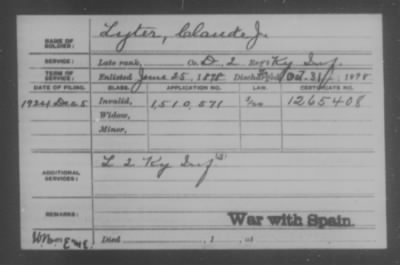 NAME OF SOLDIER: Lyter, Claude J.
SERVICE: Late rank, Co. D, 2 Reg't Ky Inf.
TERM OF SERVICE: Enlisted June 25, 1898 Discharged Oct. 31, 1898
DATE OF FILING. CLASS. APPLICATION NO. LAW. CERTIFICATE NO.
1924 Dec 5 Invalid, 1,510,571 1265408
Widow,
Minor,
ADDITIONAL SERVICES: L 2 Ky Inf
REMARKS: War with Spain.
Died , 1 , at